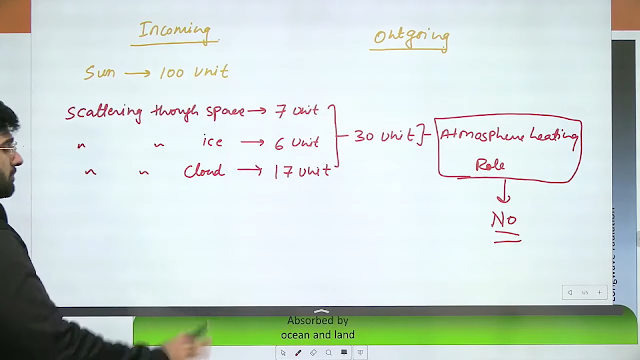 Incoming
Outgoing
Sun → 100 unit
Scattering though space → 7 unit
" " ice → 6 unit
" " cloud → 17 unit
30 unit
Atmosphere heating
Role
No
Absorbed by
ocean and land
Longwave radiation